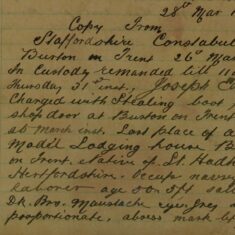 28st Mar 1
Copy From
Staffordshire Constabul
Burton on Trent 26th Mar
In Custody remanded till 11 a
Thursday 31st inst, Joseph
Charged with Stealing boot f
shop door at Burton on Trent
26 March inst. Last place of a
Model Lodging house B
on Trent. Native of St.
Hertfordshire. Occup navvy
laborer age 5ft
Dk. Bro. Maustache eyes grey
proportionate, abcess mark